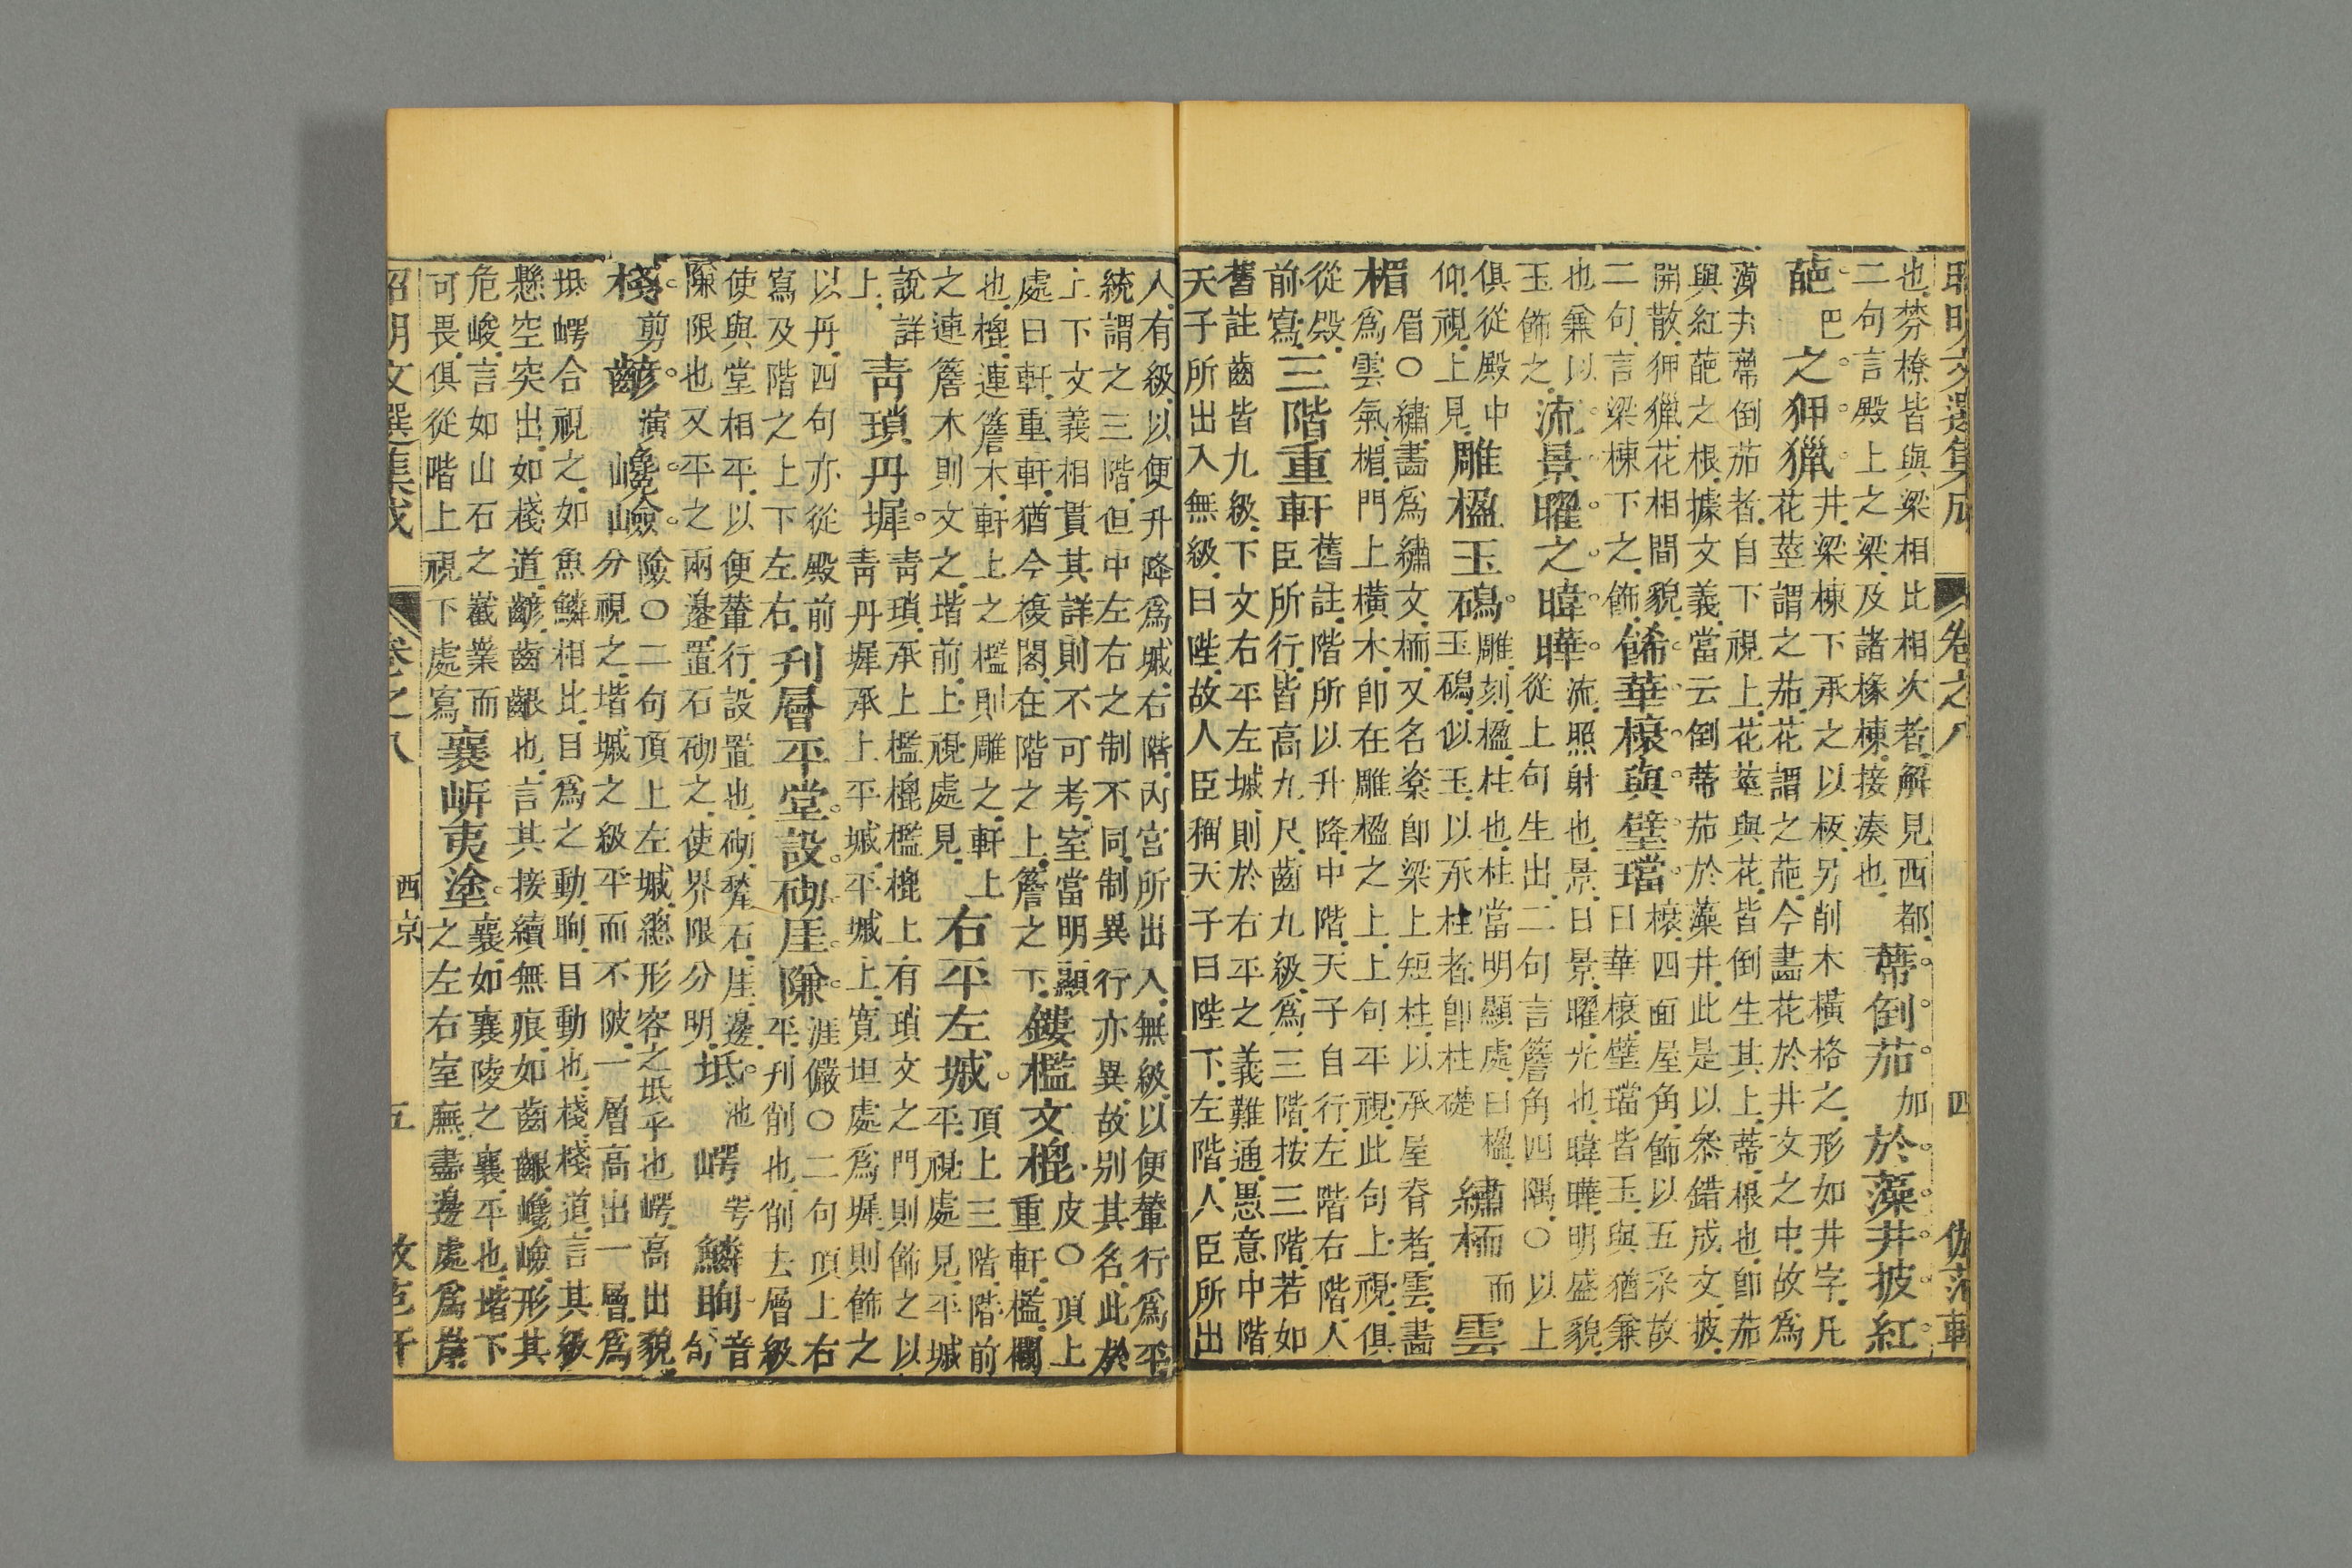 昭明文選集成 卷之八 四
也棼橑皆與梁相比相次者解見西都
二句言殿上之梁及諸椽棟接湊也
蔕倒茄加於藻井披紅
葩巴之狎獵
井梁棟下承之以板另削木橫格之形如井字凡
花莖謂之茄花謂之葩今畫花於井文之中故爲
藻井蔕倒茄者自下視上花莖與花皆倒生其上蔕根也卽茄
與紅葩之根據文義當云倒蔕茄於藻井此是以叅錯成文披
開散狎獵花相間貌
二句言梁棟下之飾
飾華榱與璧璫
榱四面屋角飾以五采故
曰華榱璧璫皆玉與猶兼
也兼以
玉飾之
流景曜之暐曄
流照射也景日景曜光也暐曄明盛貌
從上句生出二句言簷角四隅〇以上
俱從殿中
仰視上見
雕楹玉磶
雕刻楹柱也柱當明顯處曰楹
玉磶似玉玉以承柱者卽柱礎
繡栭而雲
楣眉〇繡畫爲繡文栭又名楶卽梁上短柱以承屋脊者雲畫
爲雲氣楣門上橫木卽在雕楹之上上句平視此句上視俱
從殿
前寫
三階重軒
舊註階所以升降中階天子自行左階右階人
臣所行皆高九尺齒九級爲三階按三階若如
舊註齒皆九級下文右平左墄則於右平之義難通愚意中階
天子所出入無級曰陛故人臣稱天子曰陛下左階人臣所出
入有級以便升降爲墄右階內宮所出入無級以便輦行爲平
統謂之三階但中左右之制不同制異行亦異故別其名此於
上下文義相貫其詳則不可考室當明顯
處曰軒重軒猶今複閣在階之上簷之下
鏤檻文㮰皮〇頂上
重軒檻欄
也㮰連簷木軒上之檻則雕之軒上
之連簷木則文之堦前上視處見
右平左墄
頂上三階階前
平視處見平墄
說詳
上
青瑣丹墀
青瑣承上檻㮰檻㮰上有瑣文之門則飾之以
青丹墀承上平墄平墄上寬坦處爲墀則飾之
以丹四句亦從殿前
寫及階之上下左右
刊層平堂設砌厓隒
涯儼〇二句頂上右
平刊削也削去層級
使與堂相平以便輦行設置也砌甃石厓邊
隒限也又平之兩邊置石砌之使界限分明
坻池崿咢鱗眴音
旬
棧剪齴演巉嶮
險〇二句頂上左墄總形容之坻乎也崿高出貌
分視之堦墄之級平而不陂一層高出一層爲
坻崿合視之如魚鱗相比目爲之動眴目動也棧棧道言其級
懸空突出如棧道齴齒齦也言其接續無痕如齒齦巉嶮形其
危峻言如山石之巀嶪而
可畏俱從階上視下處寫
襄岓夷塗
襄如襄陵之襄平也堦下
之左右室廡盡邊處爲岸
昭明文選集成 卷之八 西京 五